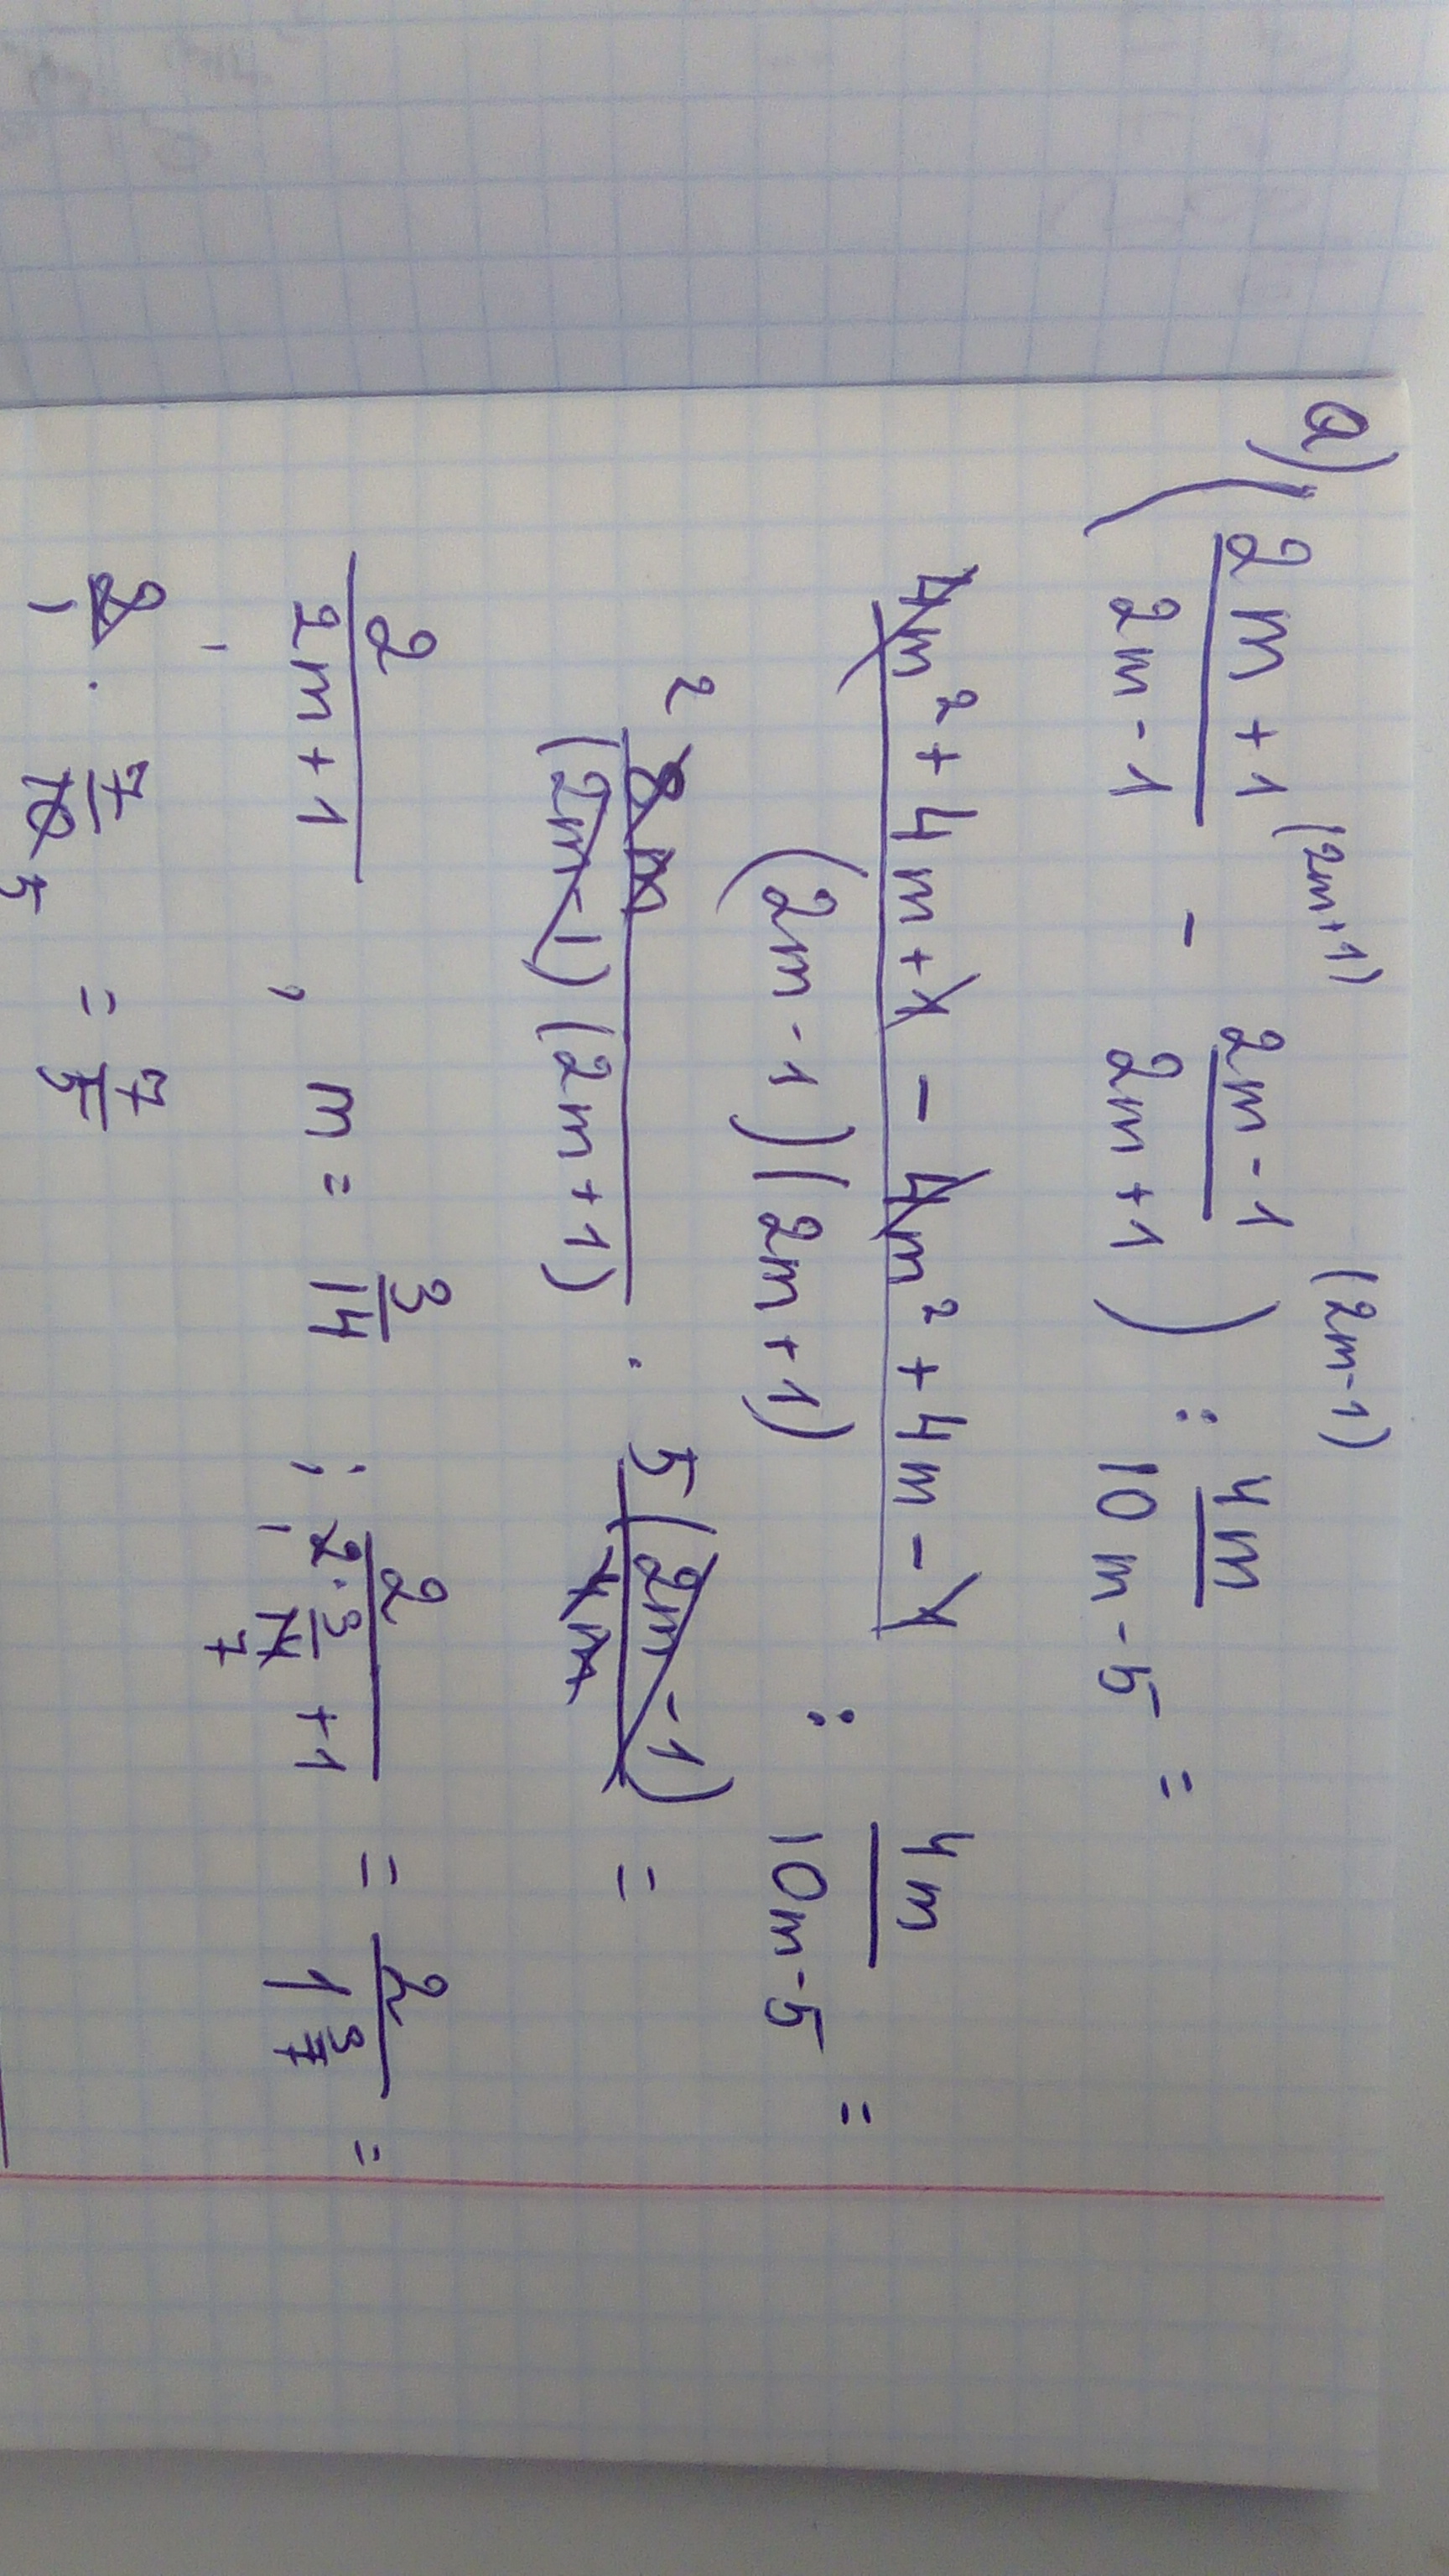 (2m+1) (2m-1)
a) ( 2m+1/2m-1 - 2m-1/2m+1 ) : 4m/10m-5 =
4m² + 4m + 1 - 4m² + 4m - 1/(2m-1)(2m+1) : 4m/10m-5 =
2 8m/(2m-1)(2m+1) · 5(2m-1)/4m =
2/2m+1 , m = 3/14 ; 2/2·3/14 7 +1 = 2/1 3/7 =
2 · 7/10 5 = 7/5